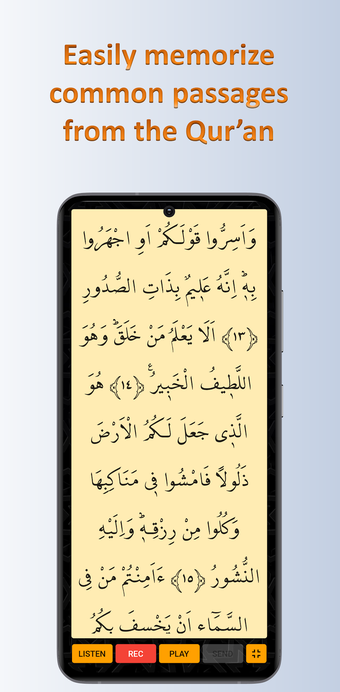 Easily memorize
common passages
from the Qur’an
وَاَسِرُّوا قَوْلَكُمْ اَوِ اجْهَرُوا
بِهٖؕ اِنَّهٗ عَلٖيمٌ بِذَاتِ الصُّدُورِ
﴿١٣﴾ اَلَا يَعْلَمُ مَنْ خَلَقَؕ وَهُوَ
اللَّطٖيفُ الْخَبٖيرُࣖ ﴿١٤﴾ هُوَ
الَّذٖى جَعَلَ لَكُمُ الْاَرْضَ
ذَلُولًا فَامْشُوا فٖى مَنَاكِبِهَا
وَكُلُوا مِنْ رِزْقِهٖؕ وَاِلَيْهِ
النُّشُورُ ﴿١٥﴾ ءَاَمِنْتُمْ مَنْ فِى
السَّمَٓاءِ اَنْ يَخْسِفَ بِكُمُ
LISTEN REC PLAY SEND